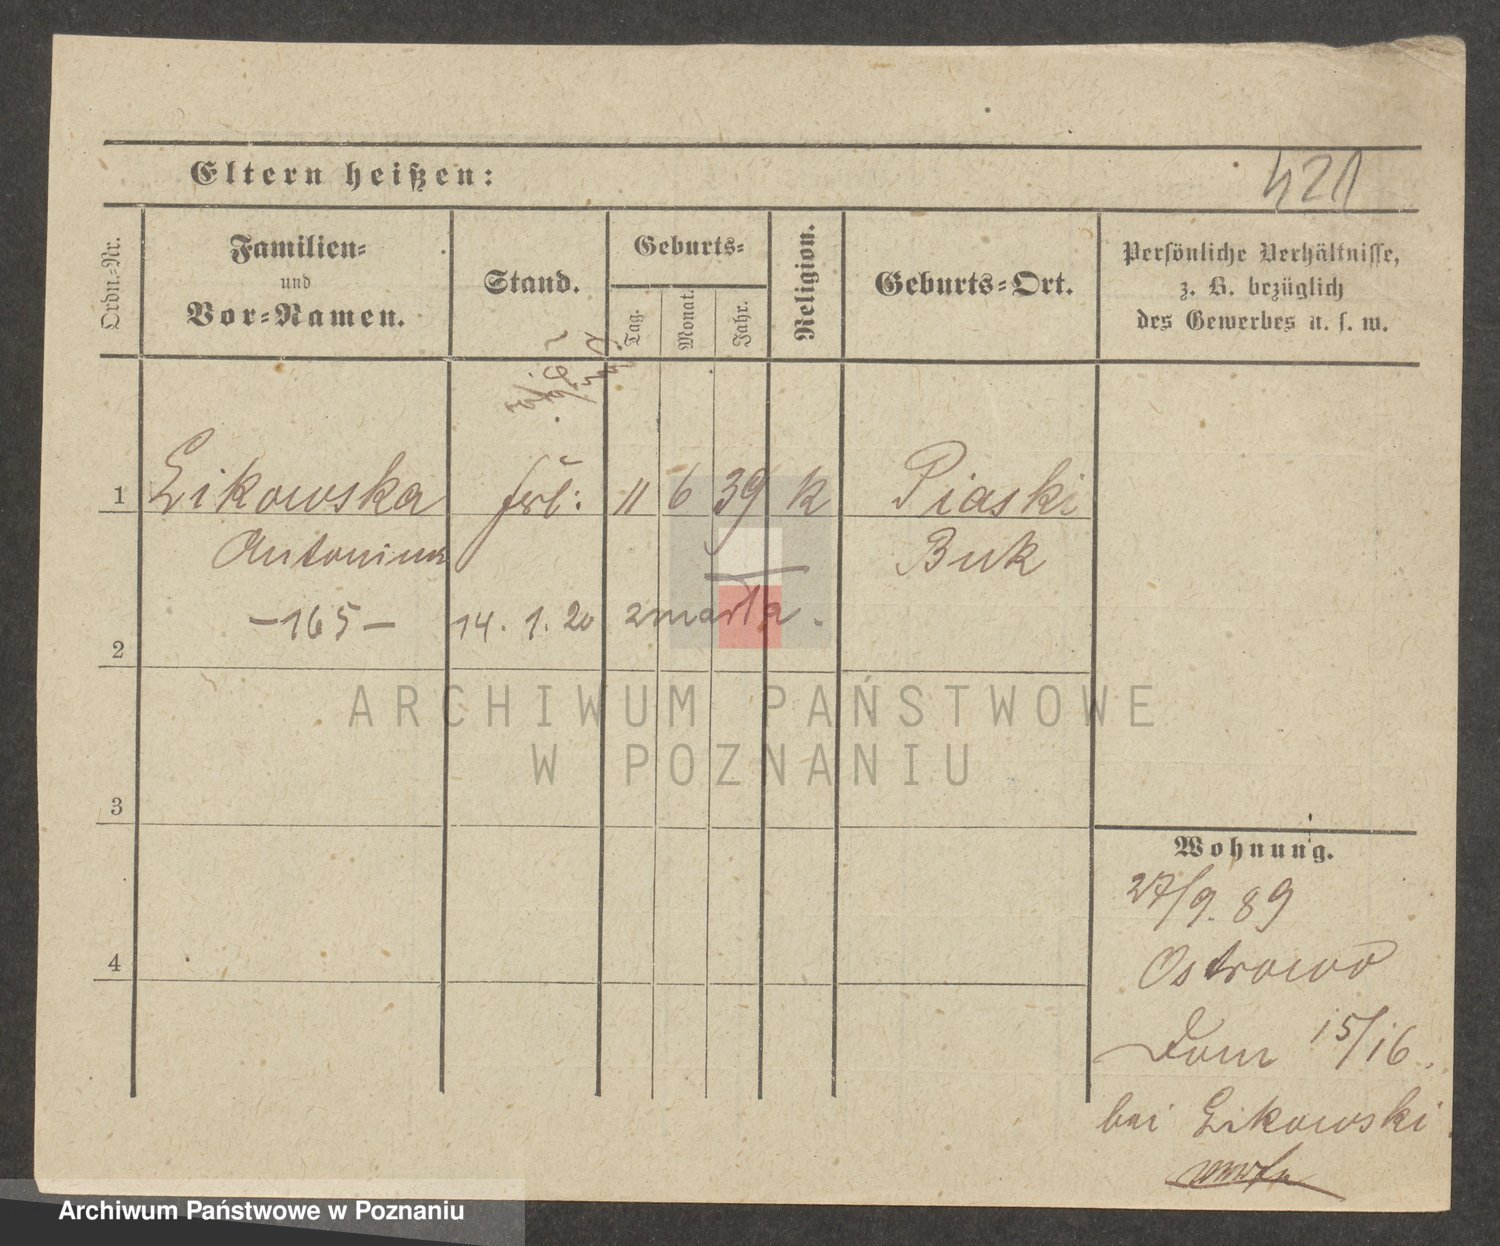 421
Eltern heißen:
Ordn.-Nr.
Familien-
und
Vor-Namen.
Stand.
Geburts-
Tag.
Monat.
Jahr.
Religion.
Geburts-Ort.
Persönliche Verhältnisse,
z. B. bezüglich
des Gewerbes u. s. w.
1 Likowska frl: 11 6 39 K Piaski
Antonina Buk
-165- 14. 1. 20 zmarła.
2
ARCHIWUM PAŃSTWOWE
W POZNANIU
3
Wohnung.
27/9. 89
4
Ostrowo
Dom 15/16.
bei Likowski
Archiwum Państwowe w Poznaniu